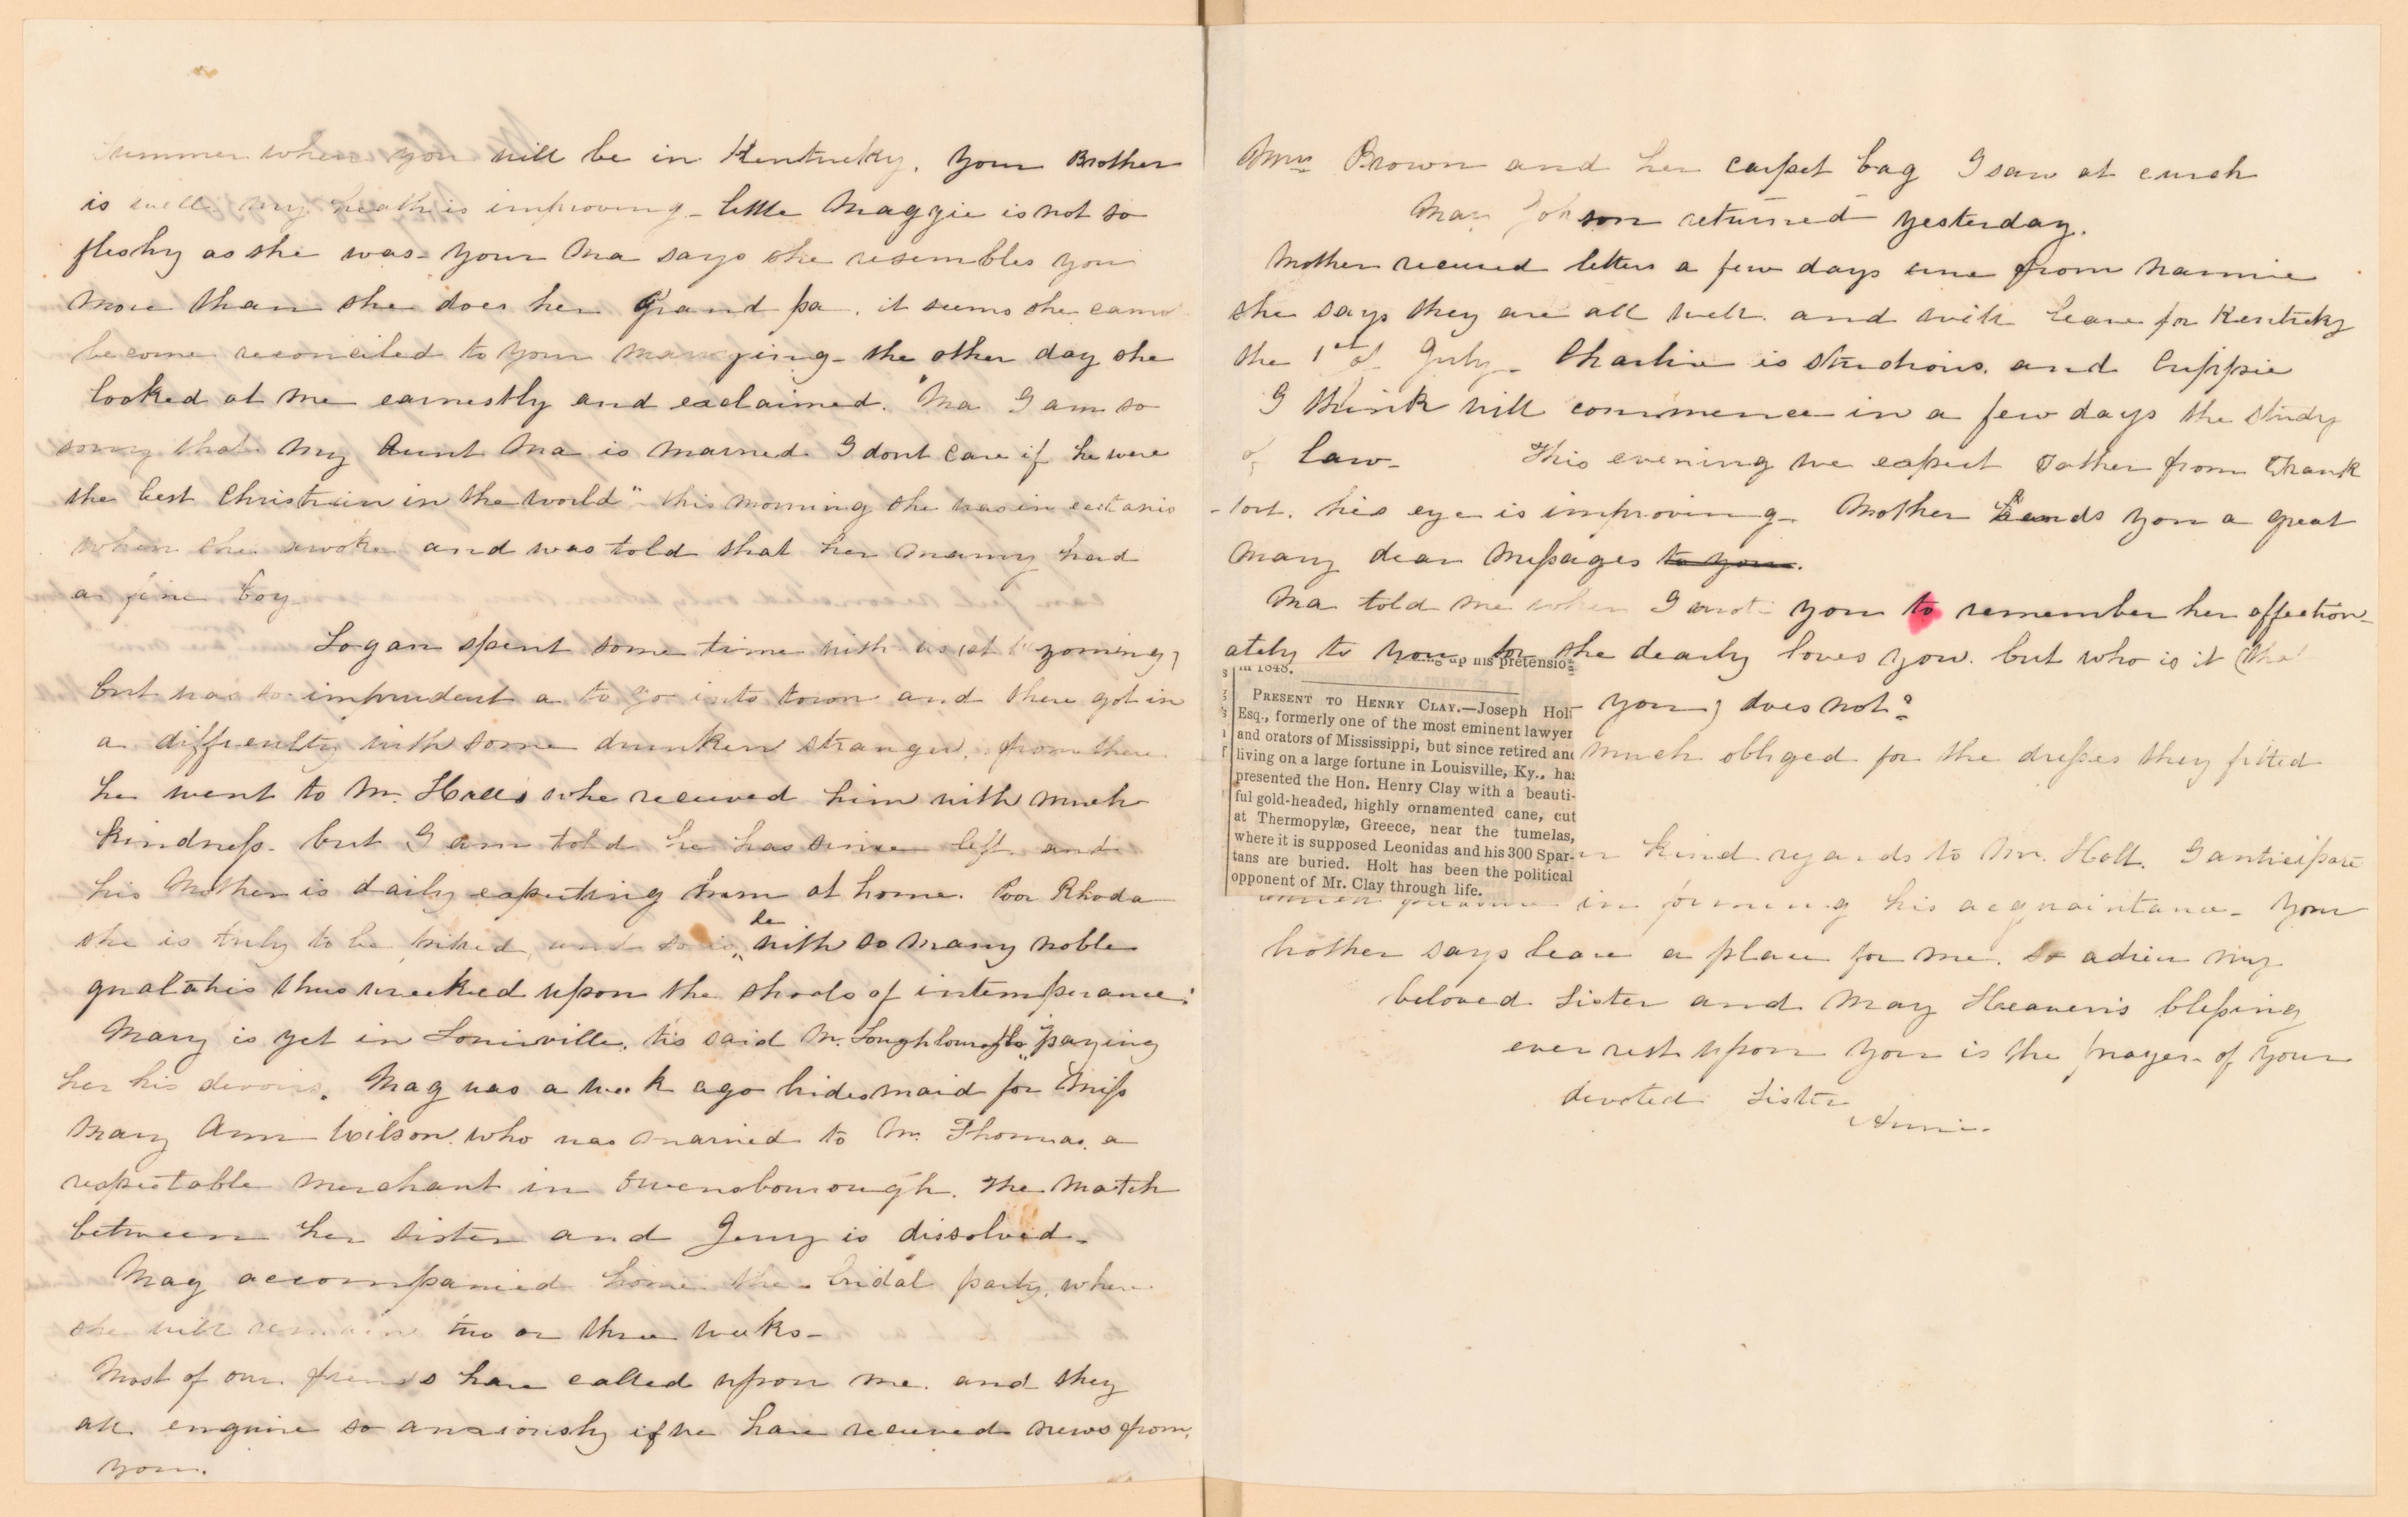 summer when you will be in Kentucky. Your Brother
is well my health is improving - little Maggie is not so
fleshy as she was - your Ma says she resembles you
more than she does her Grand pa. it seems she cannot
become reconciled to your marrying - the other day she
looked at me earnestly and exclaimed. "Ma I am so
sorry that my Aunt Ma is married I dont care if he were
the best Christian in the world" - this morning she was in
when she awoke and was told that her mamy had
a fine boy
Logan spent some time with us (at Wyoming)
but was so imprudent a to go into town and there got in
a difficulty with some drunken stranger. from there
he went to Mr. who received him with much
kindness - but I am told he has since left and
his Mother is daily expecting him at home. Poor Rhoda
she is truly to be pitied, and so is he with so many noble
thus wrecked upon the shoals of intemperance:
Mary is yet in Louisville. tis said Mr. is paying
her his devoirs. Mag was a week ago bridesmaid for Miss
Mary Ann Wilson. who was married to Mr. Thomas. a
respectable Merchant in Owensbourough. The Match
between her sister and Jerry is dissolved -
Mag accompanied home the bridal party. where
she will remain two or three weeks -
Most of our friends have called upon me. and they
all enquire so anxiously if we have received news from
you.
Mrs Brown and her carpet bag I saw at
Johson returned yesterday.
Mother received letters a few days from Nannie
she says they are all well. and will leave for Kentucky
the 1st of July - Charlie is studious. and
I think will commence in a few days the study
of Law - This evening we expect Father from Frank
-fort. his eye is improving - Mother sends you a great
many dear Messages to you.
Ma told me when I wrote you to remember her affection-
ately to you for she dearly loves you. but who is it (that
you) does not?
much obliged for the dresses they fitted
kind regards to Mr. Holt. I anticipate
in forming his acquaintance - Your
brother says leave a place for me. so adieu my
beloved Sister and may Heaven's blessing
ever rest upon you is the prayer of your
devoted Sister
Annie.
up his pretensio
in 1848.
PRESENT TO HENRY CLAY.—Joseph Holt
Esq., formerly one of the most eminent lawyer
and orators of Mississippi, but since retired and
living on a large fortune in Louisville, Ky., has
presented the Hon. Henry Clay with a beauti-
ful gold-headed, highly ornamented cane, cut
at Thermopylæ, Greece, near the tumelas,
where it is supposed Leonidas and his 300 Spar-
tans are buried. Holt has been the political
opponent of Mr. Clay through life.